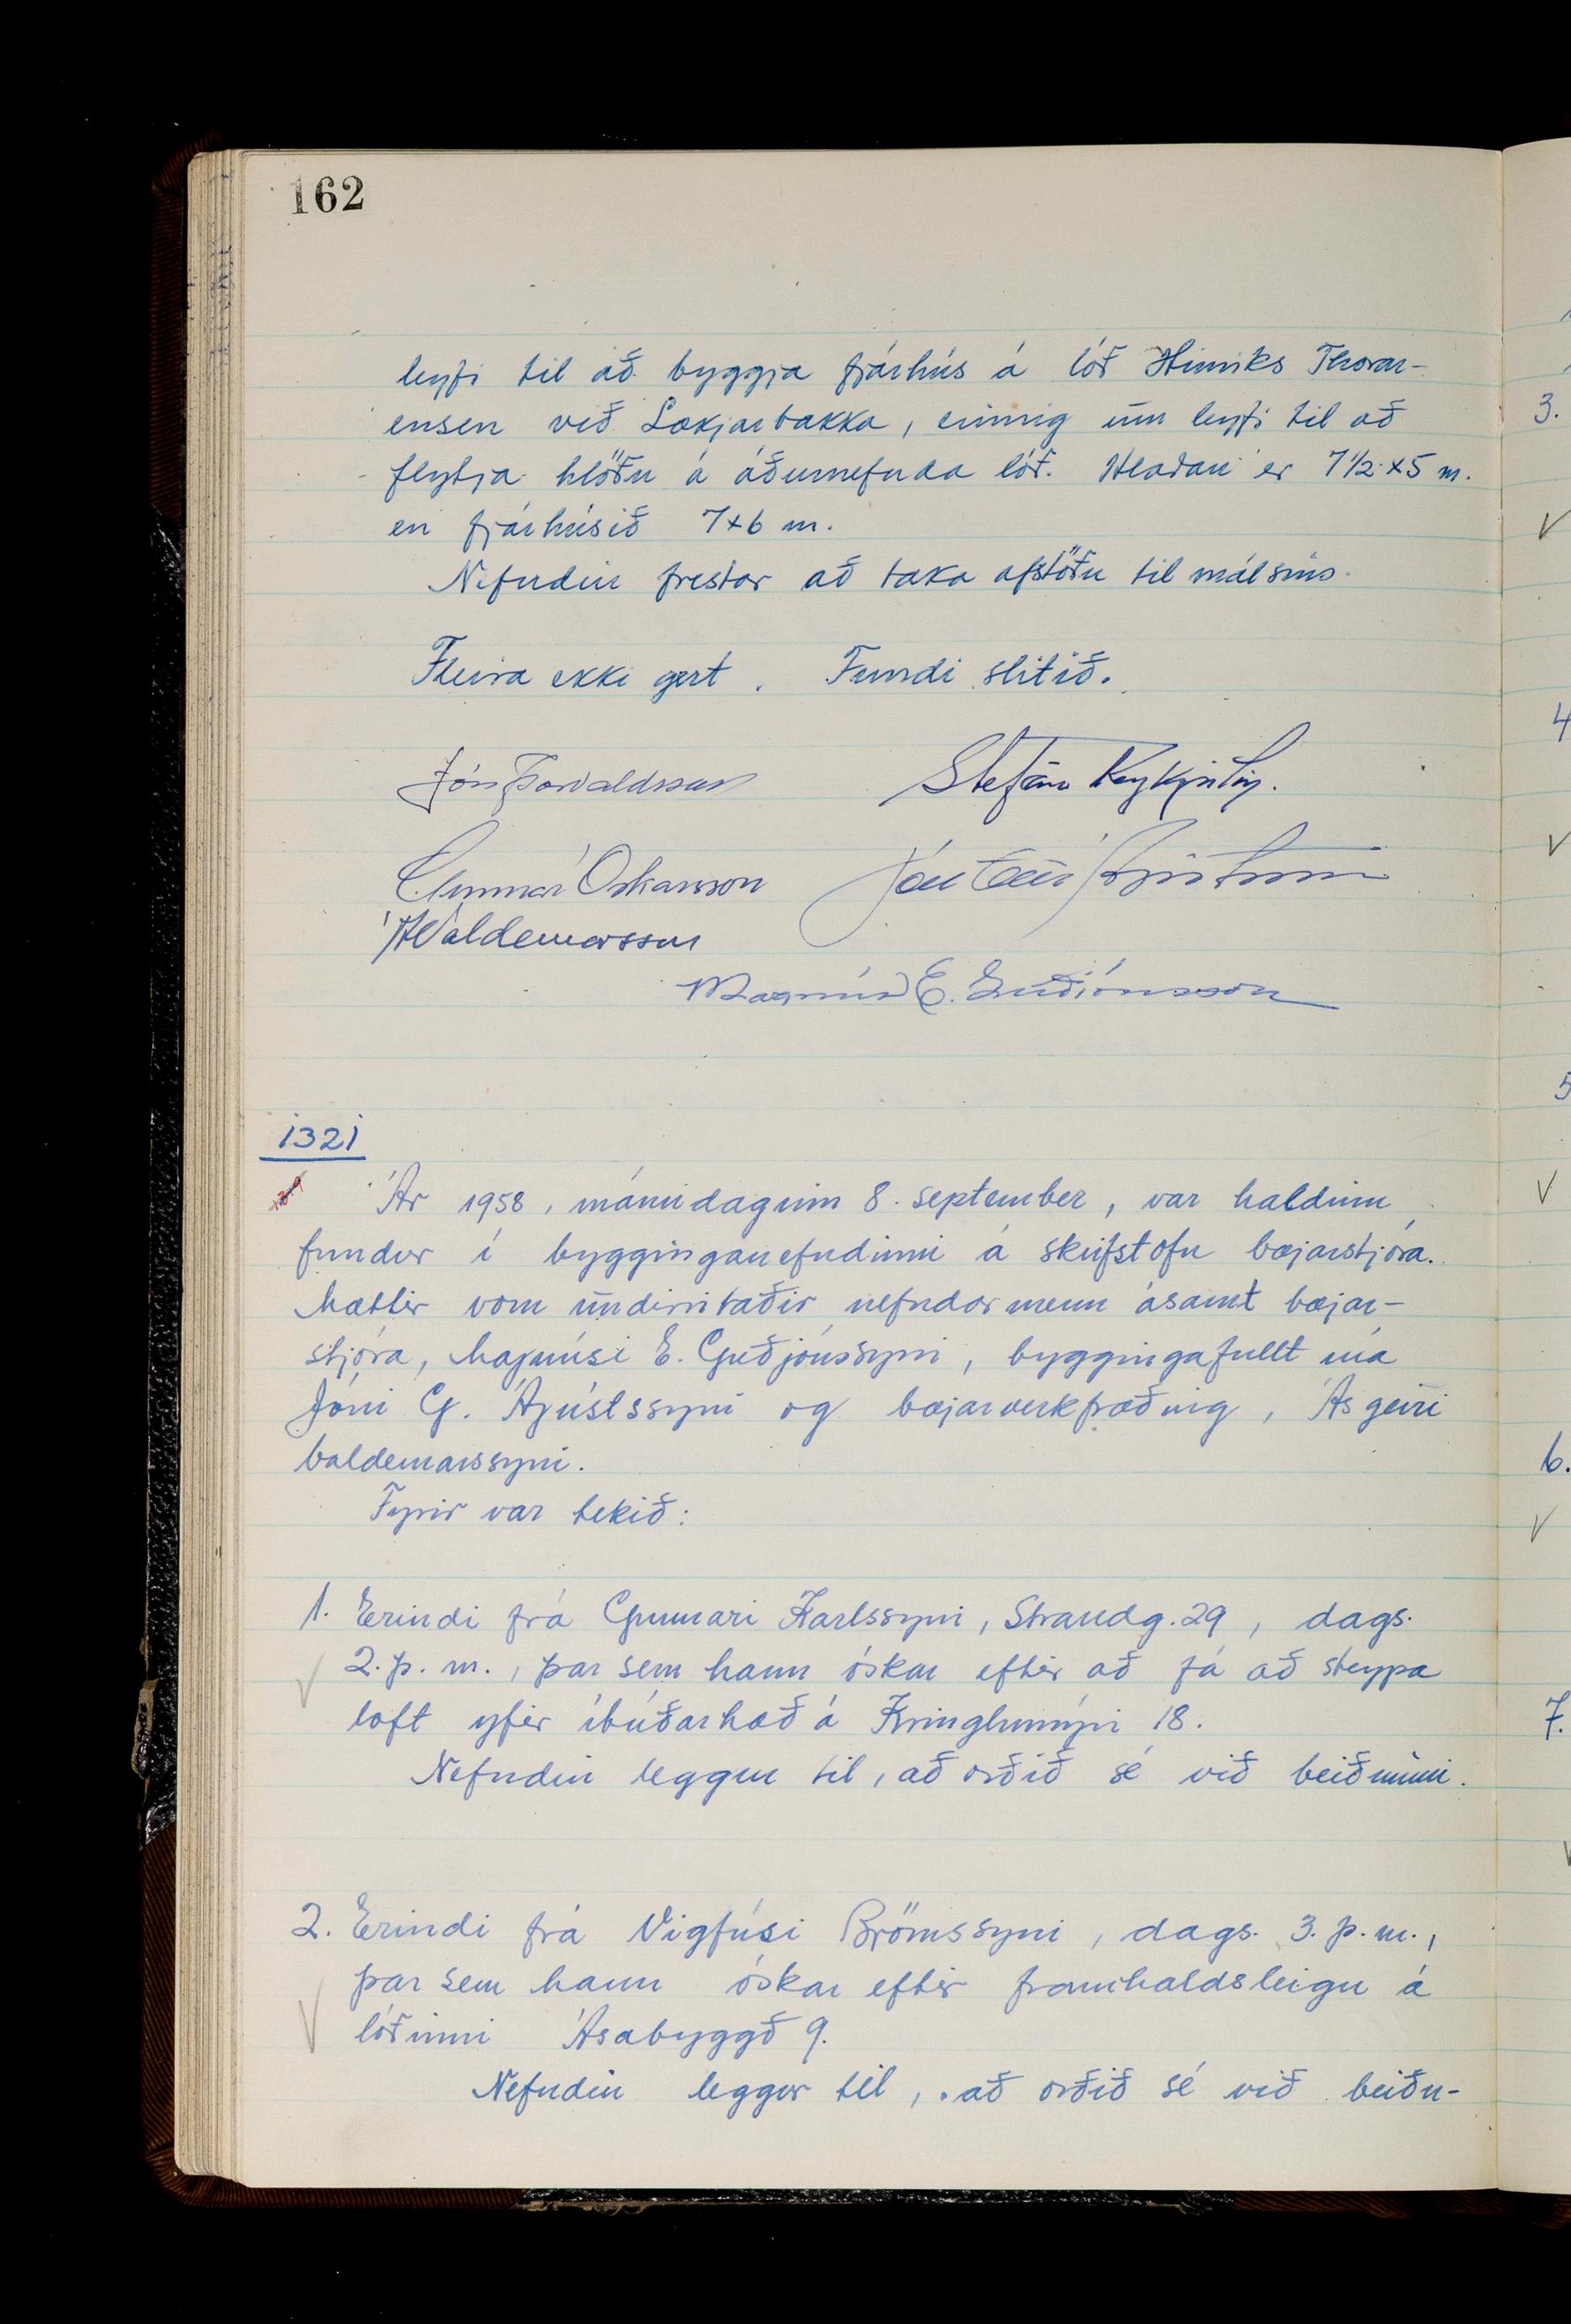 162
leyfi til að byggja fjárhús á lóð Hinriks Thorar-
ensen við Lækjarbakka, einnig um leyfi til að
flytja hlöðu á áðurnefnda lóð. Hlaðan er 7 1/2 x 5 m.
en fjárhúsið 7x6 m.
Nefndin frestar að taka afstöðu til málsins.
Fleira ekki gert. Fundi slitið.
Jón Þorvaldsson Stefán Reykjalín.
Gunnar Óskarsson Jón Geir Ágústsson
Á Valdemarsson
Magnús E. Guðjónsson
1321
Ár 1958, mánudaginn 8. september, var haldinn
fundur í bygginganefndinni á skrifstofu bæjarstjóra.
Mættir voru undirritaðir nefndarmenn ásamt bæjar-
stjóra, Magnúsi E. Guðjónssyni, byggingafulltrúa
Jóni G. Ágústssyni og bæjarverkfræðing, Ásgeiri
Valdemarssyni.
Fyrir var tekið:
1. Erindi frá Gunnari Karlssyni, Strandg. 29, dags.
2. þ. m., þar sem hann óskar eftir að fá að steypa
loft yfir íbúðarhæð á Kringlumýri 18.
Nefndin leggur til, að orðið sé við beiðninni.
2. Erindi frá Vigfúsi Björnssyni, dags. 3. þ. m.,
þar sem hann óskar eftir framhaldsleigu á
lóðinni Ásabyggð 9.
Nefndin leggur til, að orðið sé við beiðn-
3.
4
5
6.
7.